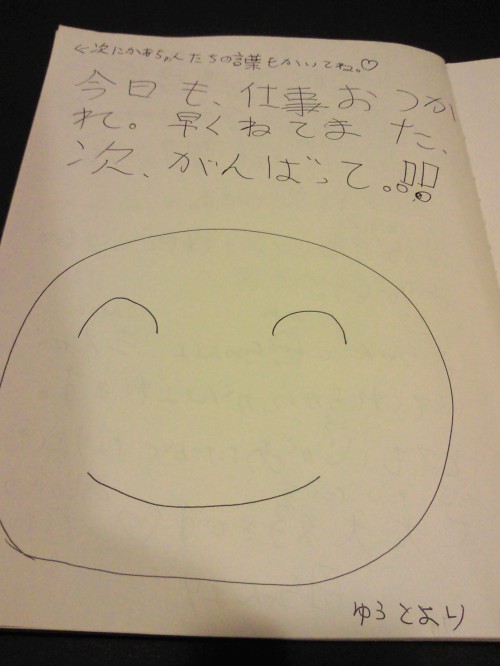 <次にかあちゃんたちの言葉もかいてね。♡
今日も、仕事おつか
れ。早くねてまた、
次、がんばって。!!!
ゆうとより